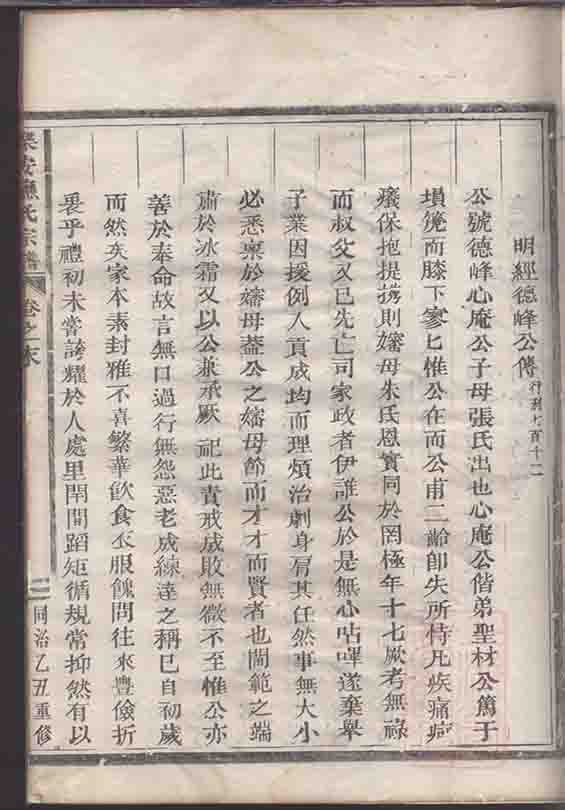 明經德峰公傳 行列七百十二
公號德峰心庵公子母張氏出也心庵公偕弟聖材公篤于
塤篪而膝下寥匕惟公在而公甫二齡卽失所恃凡疾痛疴
癢保抱提携則嬸母朱氏恩實同於罔極年十七厥考無祿
而叔父又已先亡司家政者伊誰公於是無心咕嗶遂棄舉
子業因援例入貢成均而理煩治劇身肩其任然事無大小
必悉稟於嬸母葢公之嬸母節而才才而賢者也閫範之端
肅於冰霜又以公兼承厥祀此責戒成敗無微不至惟公亦
善於奉命故言無口過行無怨惡老成練達之稱已自初歲
而然矣家本素封雅不喜繁華飮食衣服餽問往來豊儉折
衷乎禮初未嘗誇耀於人處里閈間蹈矩循規常抑然有以
安 氏宗譜 卷之末 二 同治乙丑重修